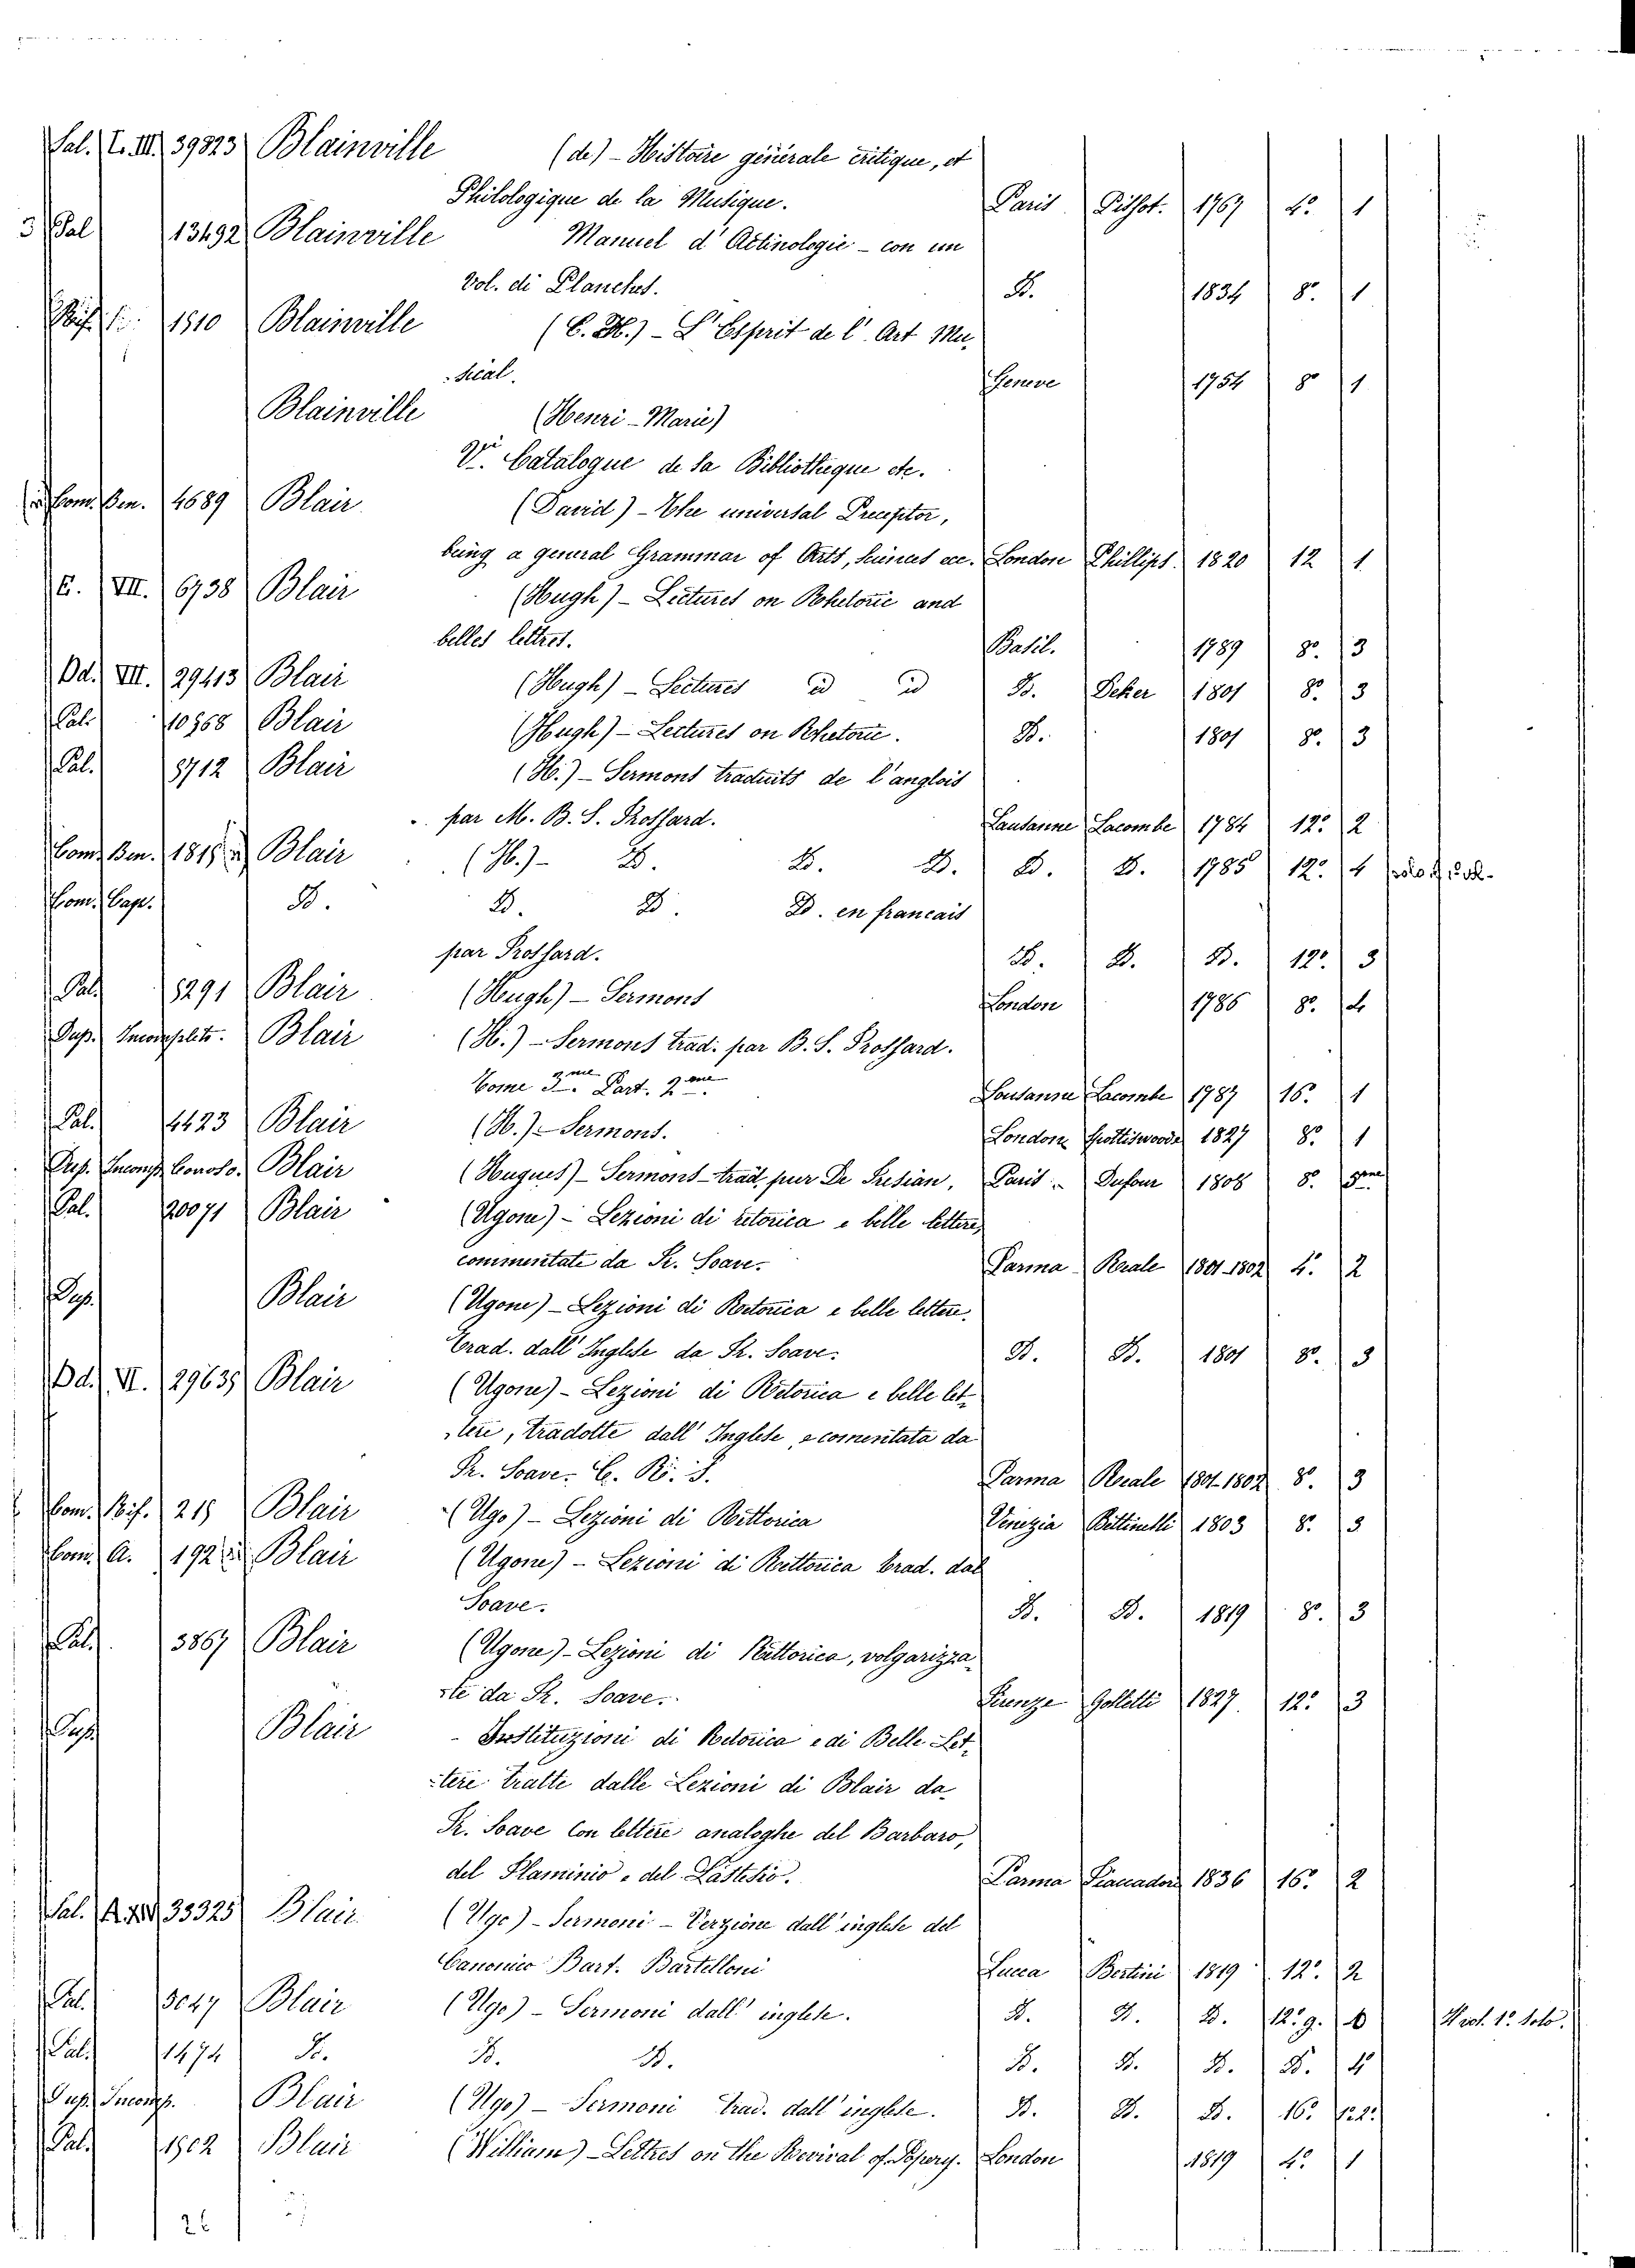 Sal. T. III. 39823 Blainville (de) - Histoire générale critique, et
Philologique de la Musique. Paris Pissot. 1767 4.º 1
3 Pal 13492 Blainville Manuel d'Actinologie - con un
Vol. di Planches. D. 1834 8.º 1
1810 Blainville (C. H.) - L'Esprit de l'Art Mu-
-sical. Geneve 1754 8º 1
Blainville (Henri-Marie)
Vi. Catalogue de sa Bibliotheque etc.
Com. Ben. 4689 Blair (David) - The universal Preceptor,
being a general Grammar of Arts, Sciences ec. London Phillips. 1820 12 1
E. VII. 6738 Blair (Hugh) - Lectures on Rhetoric and
belles lettres. Basil. 1789 8.º 3
Dd. VII. 29413 Blair (Hugh) - Lectures id id D. Deker 1801 8.º 3
Pal. 10368 Blair (Hugh) - Lectures on Rhetoric. D. 1801 8.º 3
Pal. 8712 Blair (H.) - Sermons traduits de l'anglois
par M. B. S. Frossard. Lausanne Lacombe 1784 12.º 2
Com. Ben. 1815 Blair (H.) - D. D. D. D. D. 1785 12.º 4
Com. Capi. D. D. D. D. en francais
par Frossard. D. D. D. 12.º 3
Pal. 8291 Blair (Hugh) - Sermons London 1786 8.º 2
Dup. Incomplete. Blair (H.) - Sermons trad. par B. S. Frossard.
Tome 3me. Part. 2me. Lousanne Lacombe 1787 16.º 1
Pal. 4423 Blair (H.) - Sermons. London Spottiswoode 1827 8.º 1
Dup. Incomp. Conoso. Blair (Hugues) - Sermons - trad. pur De Tresian. Paris Dufour 1808 8.º 5me
Pal. 20071 Blair (Ugone) - Lezioni di retorica e belle lettere,
commentate da Fr. Soave. Parma Reale 1801-1802 4.º 2
Dup. Blair (Ugone) - Lezioni di Retorica e belle lettere.
Trad. dall'Inglese da Fr. Soave. D. D. 1801 8.º 3
Dd. VI. 29635 Blair (Ugone) - Lezioni di Retorica e belle let-
-tere, tradotte dall'Inglese, e comentata da
Fr. Soave. C. R. S. Parma Reale 1801-1802 8.º 3
Com. Rif. 215 Blair (Ugo) - Lezioni di Rittorica Venezia Bettinelli 1803 8.º 3
Com. A. 192 Blair (Ugone) - Lezioni di Rettorica trad. dal
Soave. D. D. 1819 8.º 3
Pal. 3867 Blair (Ugone) - Lezioni di Rettorica, volgarizza-
-te da Fr. Soave. Firenze Galletti 1827. 12.º 3
Dup. Blair - Instituzioni di Retorica e di Belle Let-
-tere tratte dalle Lezioni di Blair da
Fr. Soave con lettere analoghe del Barbaro,
del Flaminio e del Lastesio. Parma Fiaccadori 1836 16.º 2
Sal. 35325 Blair (Ugo) - Sermoni - Verzione dall'inglese del
Canonico Bart. Bartelloni Lucca Bertini 1819 12.º 2
Pal. 3047 Blair (Ugo) - Sermoni dall'inglese. D. D. D. 12.º g. 6
Pal. 1474 D. D. D. D. D. D. D. 4
Dup. Incomp. Blair (Ugo) - Sermoni Trad. dall'inglese. D. D. D. 16.º
Pal. 1502 Blair (William) - Lettres on the Revival of Popery. London 1819 4.º 1
26